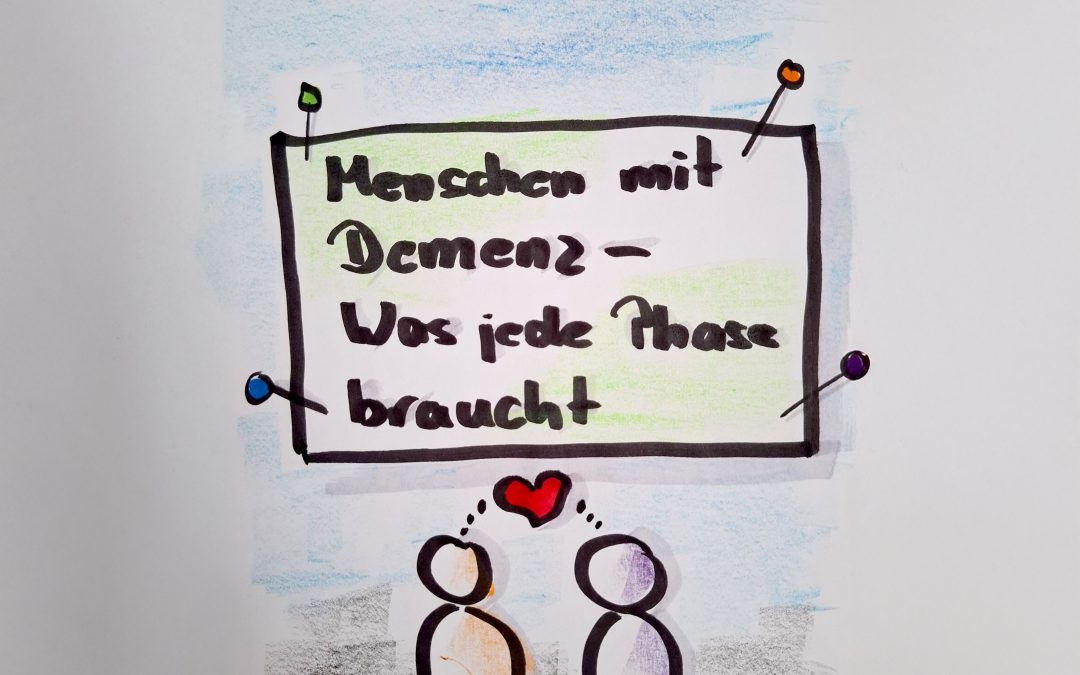 Menschen mit
Demenz –
Was jede Phase
braucht